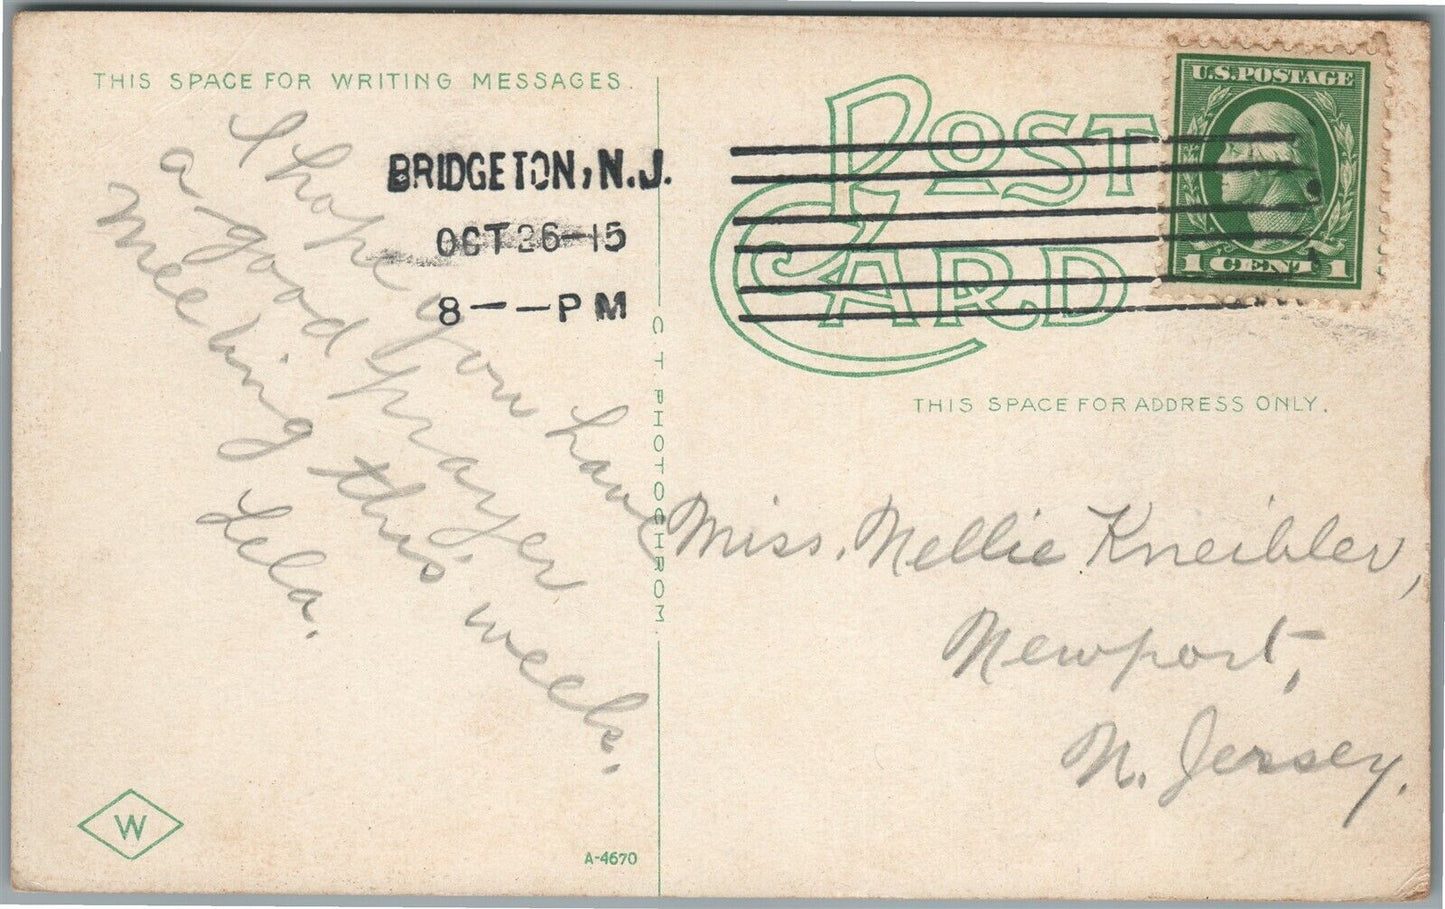 THIS SPACE FOR WRITING MESSAGES.
I hope you have
a good prayer
meeting this week.
Lela.
BRIDGETON, N.J.
OCT 26-15
8--PM
C T PHOTOCHROM.
W
A-4670
POST
CARD
U.S. POSTAGE
1 CENT 1
THIS SPACE FOR ADDRESS ONLY.
Miss. Nellie Kneibler,
Newport,
N. Jersey.